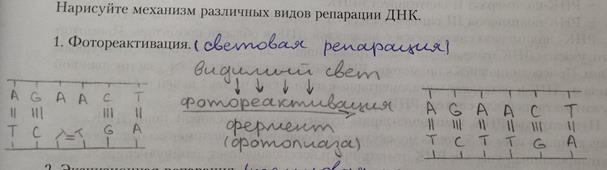 Нарисуйте механизм различных видов репарации ДНК.
1. Фотореактивация. (световая репарация)
видимый свет
фотореактивация
фермент
(фотолиаза)
A G A A C T
T C T=T G A
A G A A C T
T C T T G A